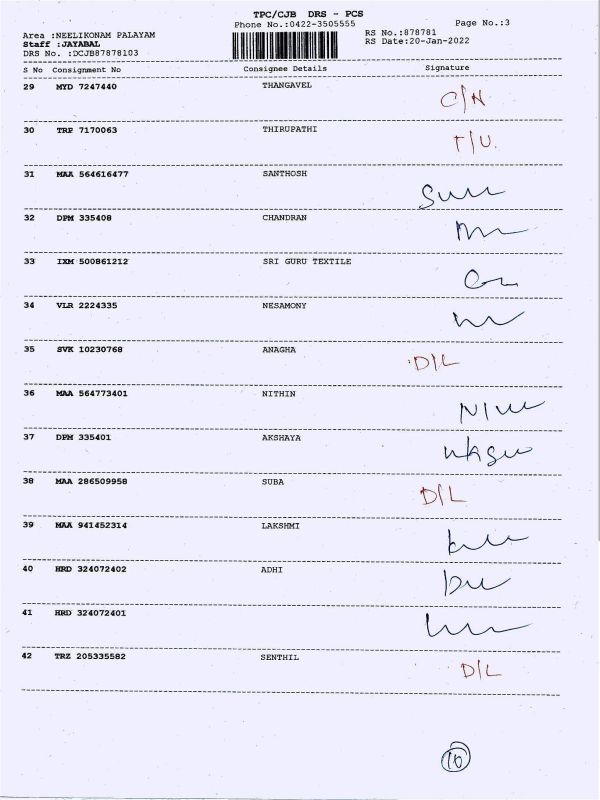 TPC/CJB DRS - PCS
Phone No.:0422-3505555 Page No.:3
Area :NEELIKONAM PALAYAM RS No.:878781
Staff :JAYABAL RS Date:20-Jan-2022
DRS No. :DCJB87878103
S No Consignment No Consignee Details Signature
29 MYD 7247440 THANGAVEL C/N
30 TRP 7170063 THIRUPATHI T/U.
31 MAA 564616477 SANTHOSH
32 DPM 335408 CHANDRAN
33 IXM 500861212 SRI GURU TEXTILE
34 VLR 2224335 NESAMONY
35 SVK 10230768 ANAGHA D/L
36 MAA 564773401 NITHIN
37 DPM 335401 AKSHAYA
38 MAA 286509958 SUBA D/L
39 MAA 941452314 LAKSHMI
40 HRD 324072402 ADHI
41 HRD 324072401
42 TRZ 205335582 SENTHIL D/L
10